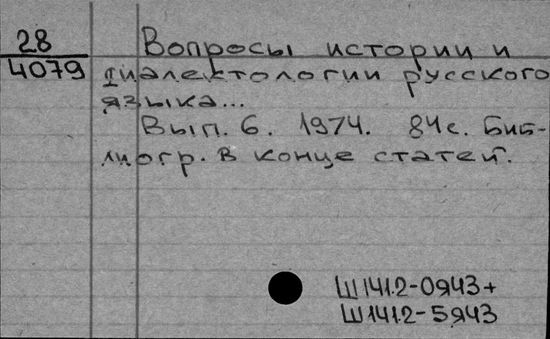 28
4079
Вопросы истории и
диалектологии русского
языка...
Вып. 6. 1974. 84с. Биб-
лиогр. в конце статей.
Ш141.2-0я43+
Ш141.2-5я43